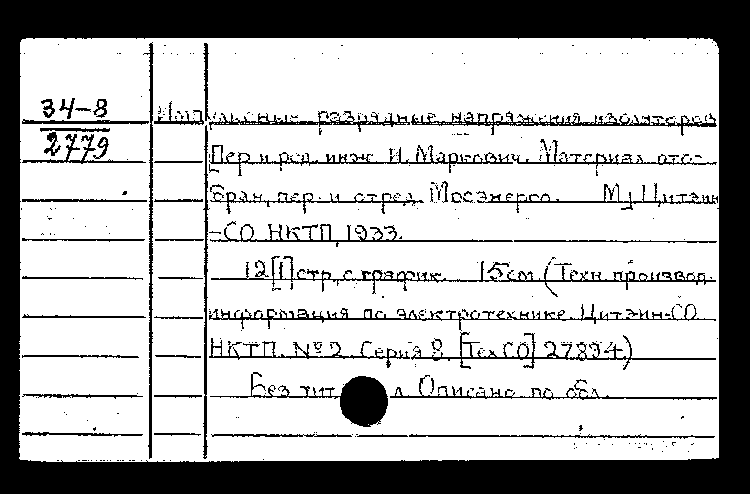 34-8
2779
Импульсные разрядные напряжения изоляторов
Пер и ред. инж И. Маркович. Материал ото-
бран, пер. и отред. Мосэнерго. М, Цитэин
-СО НКТП, 1933.
12[1] стр. с график. 15 см (Техн. производ.
информация по электротехнике. Цитэин-СО
НКТП. № 2. Серия 8. [ТехСО] 27894)
Без тит л. Описано по обл.